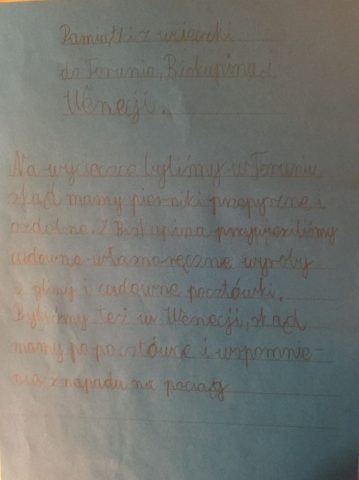 Pamiątki z wycieczki
do Torunia, Biskupina i
Wenecji.
Na wycieczce byliśmy w Toruniu
skąd mamy pierniki przepyszne i
ozdobne. Z Biskupina przywieźliśmy
cudowne własnoręczne wyroby
z gliny i cudowne pocztówki.
Byliśmy też w Wenecji, skąd
mamy po pocztówce i wspomnie-
nia z napadu na pociąg